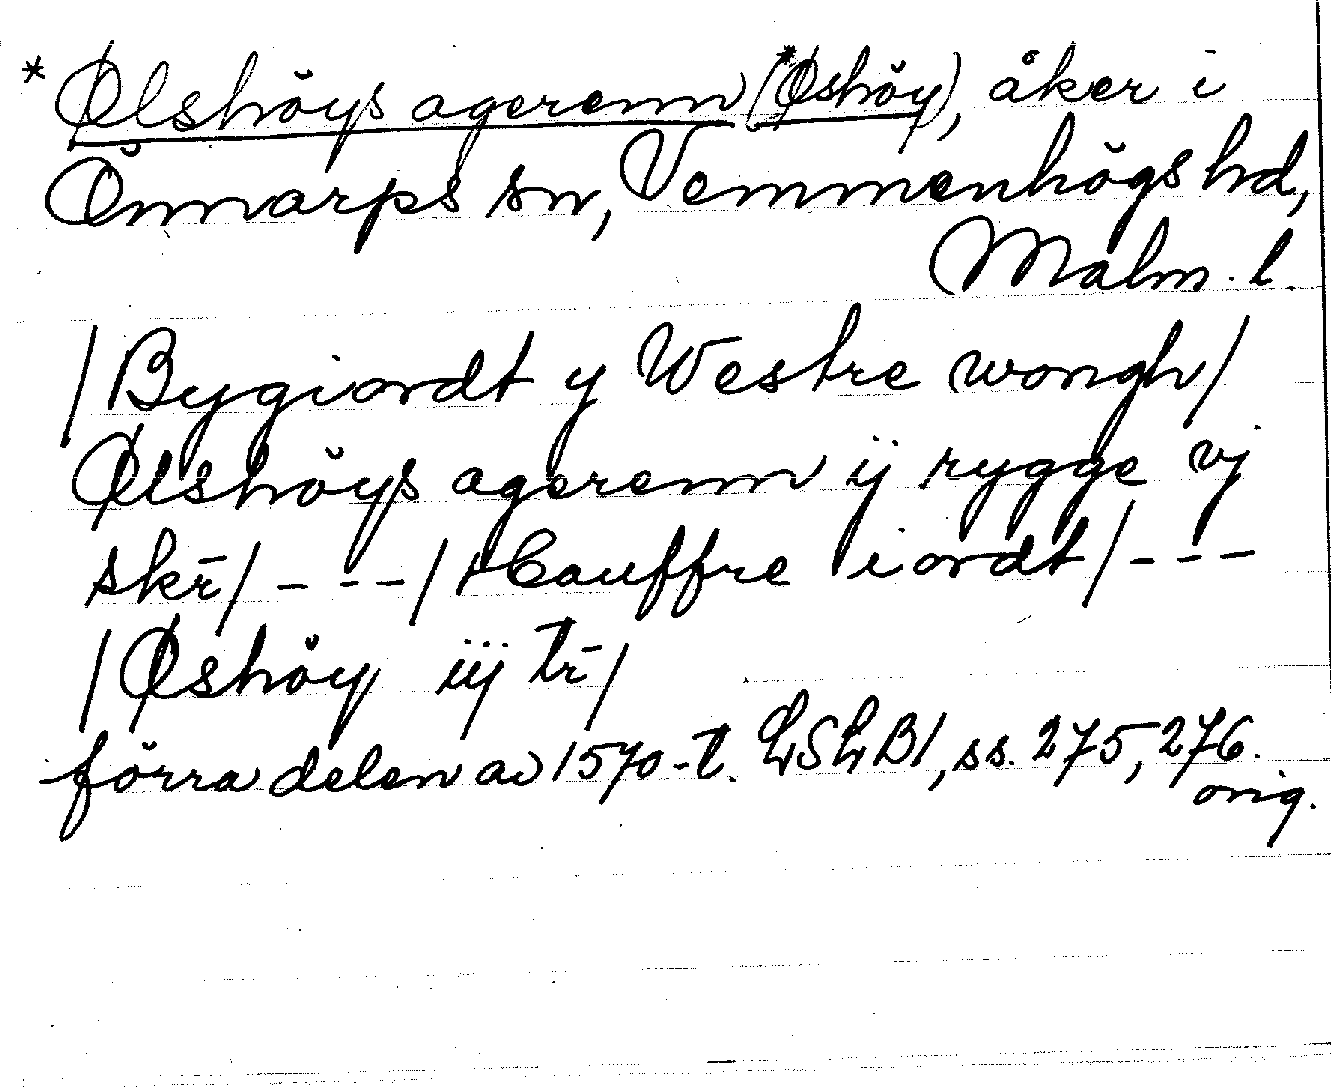 * Ølshöys agerenn (*Øshöy), åker i
Önnarps sn, Vemmenhögs hd,
Malm. l.
/Bygiordt y Westre wongh/
Ølshöys agerenn ij rygge vj
skr̄/ - - - /Hauffre iordt/ - - -
/Øshöy iij tr̄/
förra delen av 1570-t. LSLB1, ss. 275, 276.
orig.